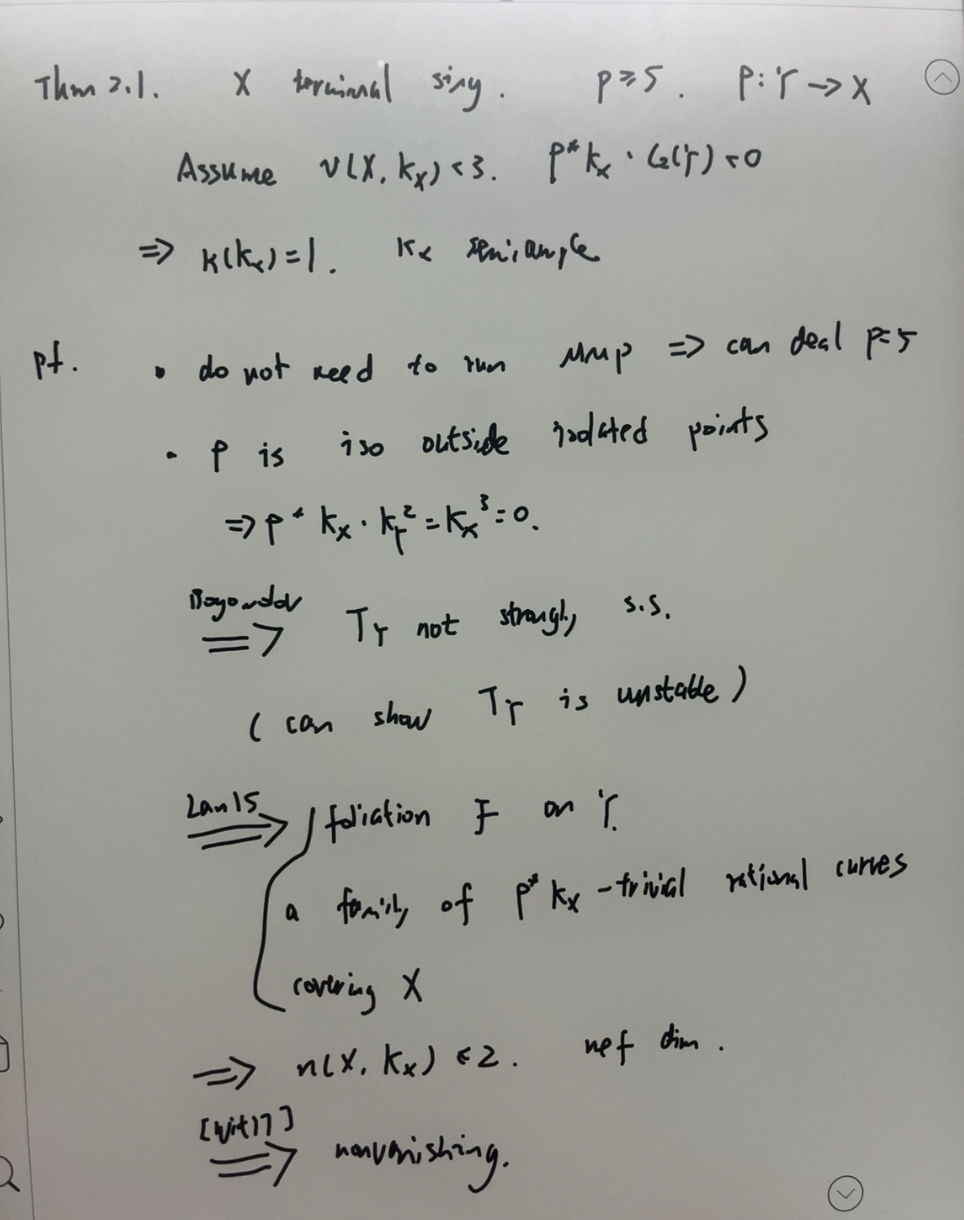 Thm 2.1. X terminal sing. p≥5. ρ: Y → X
Assume ν(X, Kx) < 3. ρ* Kx · C₂(Y) < 0
⇒ κ(Kx) = 1. Kx semiample
pf. • do not need to run MMP ⇒ can deal p=5
• ρ is iso outside isolated points
⇒ ρ* Kx · K_Y² = Kx³ = 0.
Bogomolov ⇒ T_Y not strongly s.s.
( can show T_Y is unstable )
Lan15 ⇒ foliation F on Y.
a family of ρ* Kx - trivial rational curves
covering X
⇒ n(X, Kx) ≤ 2. nef dim.
[Wit17] ⇒ nonvanishing.